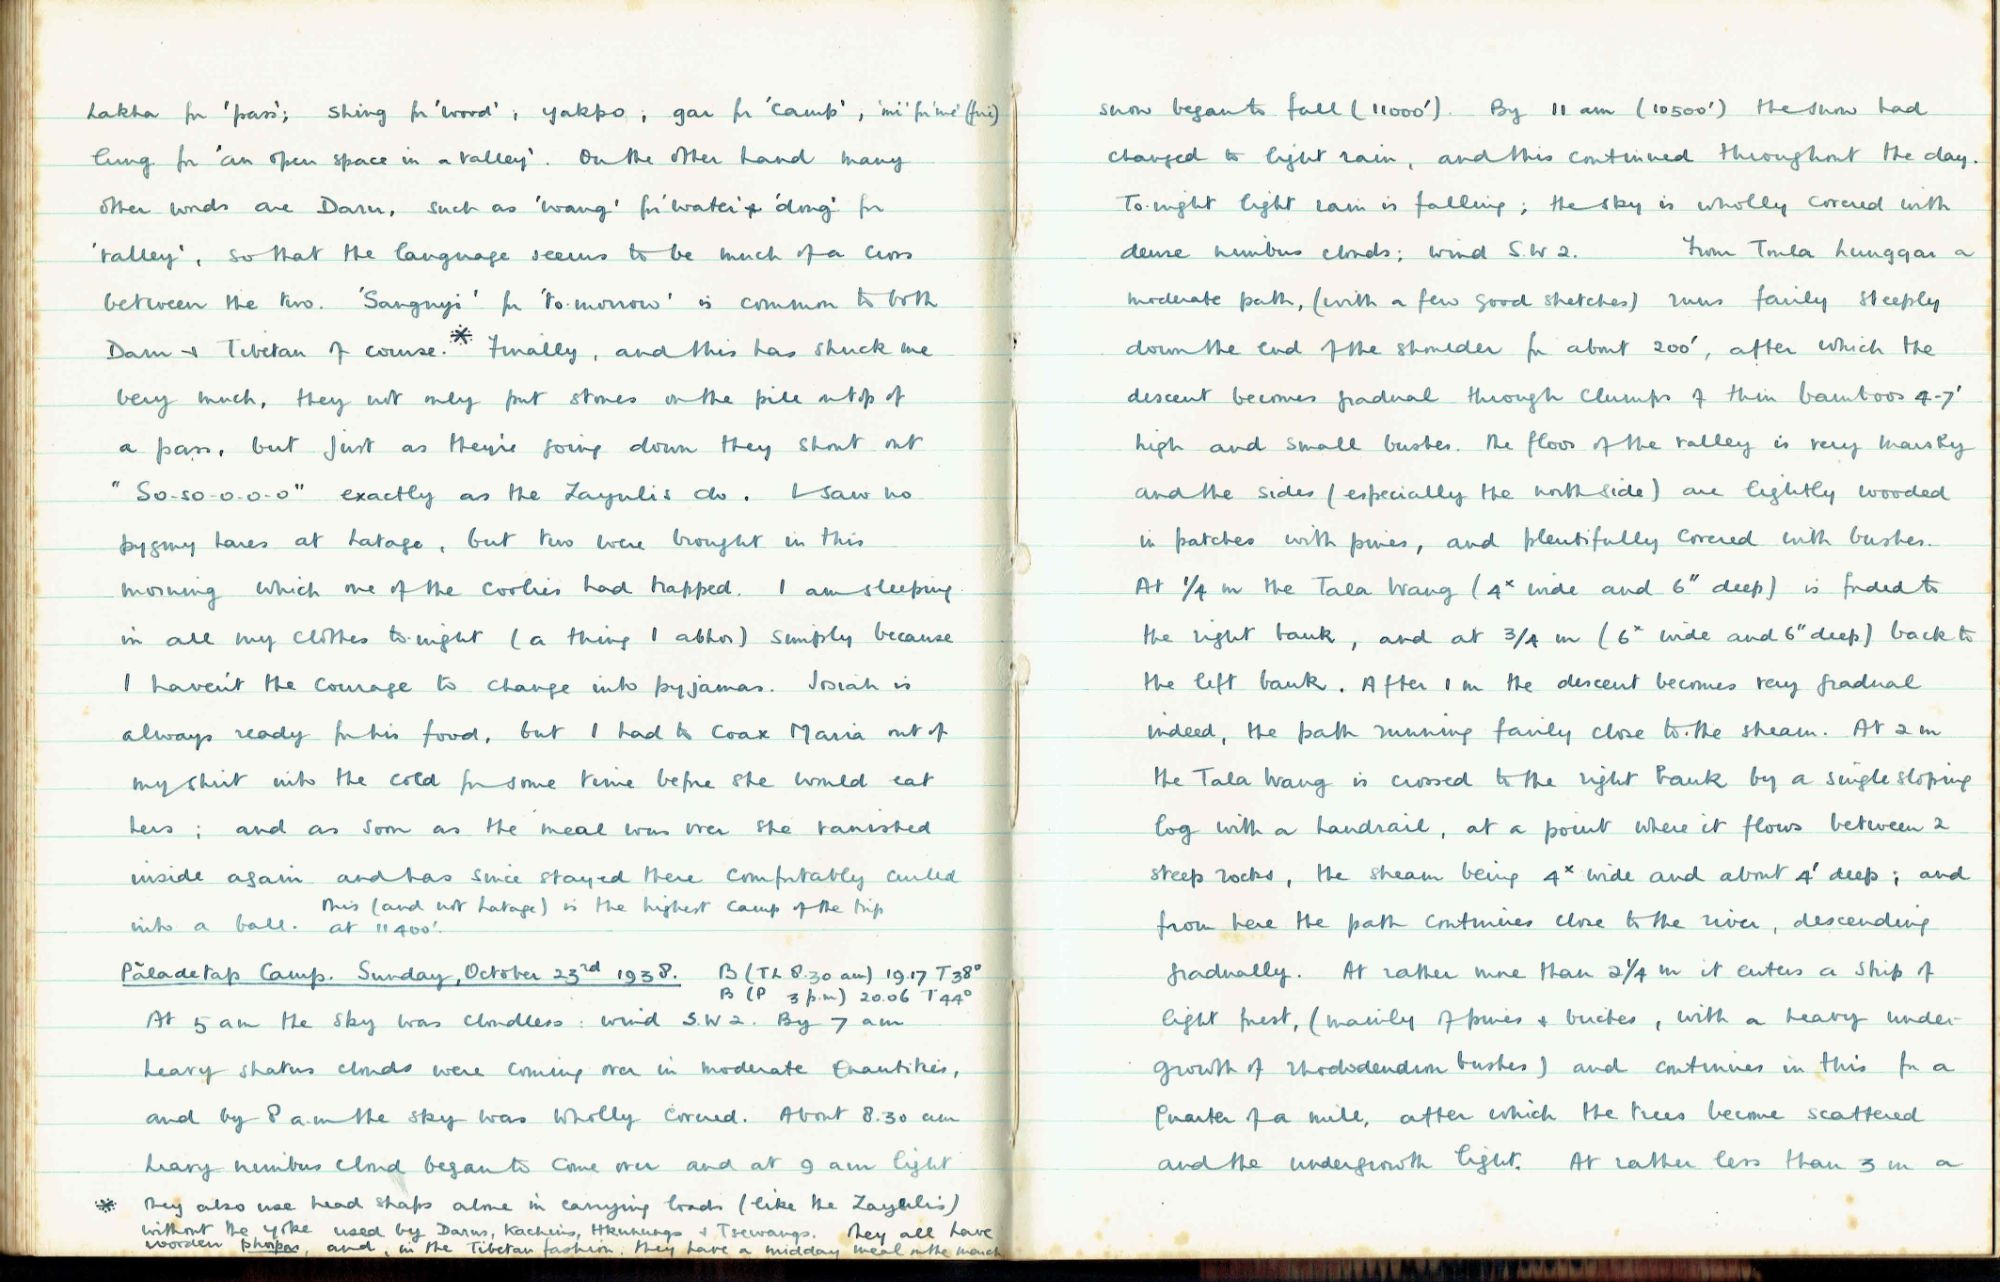 Lakha for 'pass'; shing for 'wood'; yakpo; gar for 'camp', 'mi' for 'me' (fire)
lung for 'an open space in a valley'. On the other hand many
other words are Daru, such as 'wang' for 'water' + 'dong' for
'valley', so that the language seems to be much of a cross
between the two. 'Sangnyi' for 'to-morrow' is common to both
Daru + Tibetan of course.* Finally, and this has struck me
very much, they not only put stones on the pile on top of
a pass, but just as they're going down they shout out
"So-so-o-o-o" exactly as the Zayulis do. I saw no
pygmy hares at Latage, but two were brought in this
morning which one of the coolies had trapped. I am sleeping
in all my clothes to-night (a thing I abhor) simply because
I haven't the courage to change into pyjamas. Josiah is
always ready for his food, but I had to coax Maria out of
my shirt into the cold for some time before she would eat
hers; and as soon as the meal was over she vanished
inside again and has since stayed there comfortably curled
into a ball. This (and not Latage) is the highest camp of the trip
at 11400'.
Păladetap Camp. Sunday, October 23rd 1938. B (TL 8.30 am) 19.17 T38°
B (P 3 p.m) 20.06 T44°
At 5 am the sky was cloudless: wind S.W 2. By 7 am
heavy stratus clouds were coming over in moderate quantities,
and by 8 a.m the sky was wholly covered. About 8.30 am
heavy nimbus cloud began to come over and at 9 am light
* They also use head straps alone in carrying loads (like the Zayulis)
without the yoke used by Darus, Kachins, Hkunungs + Tsewangs. They all have
wooden phorpas, and, in the Tibetan fashion, they have a midday meal on the march
snow began to fall (11000'). By 11 am (10500') the snow had
changed to light rain, and this continued throughout the day.
To-night light rain is falling; the sky is wholly covered with
dense nimbus clouds; wind S.W 2. From Tonla Lunggar a
moderate path, (with a few good stretches) runs fairly steeply
down the end of the shoulder for about 200', after which the
descent becomes gradual through clumps of thin bamboos 4-7'
high and small bushes. The floor of the valley is very marshy
and the sides (especially the north side) are lightly wooded
in patches with pines, and plentifully covered with bushes.
At 1/4 m the Tala Wang (4x wide and 6" deep) is forded to
the right bank, and at 3/4 m (6x wide and 6" deep) back to
the left bank. After 1 m the descent becomes very gradual
indeed, the path running fairly close to the stream. At 2 m
the Tala Wang is crossed to the right bank by a single sloping
log with a handrail, at a point where it flows between 2
steep rocks, the stream being 4x wide and about 4' deep; and
from here the path continues close to the river, descending
gradually. At rather more than 2 1/4 m it enters a strip of
light forest, (mainly of pines + birches, with a heavy under-
growth of rhododendron bushes) and continues in this for a
quarter of a mile, after which the trees become scattered
and the undergrowth light. At rather less than 3 m a